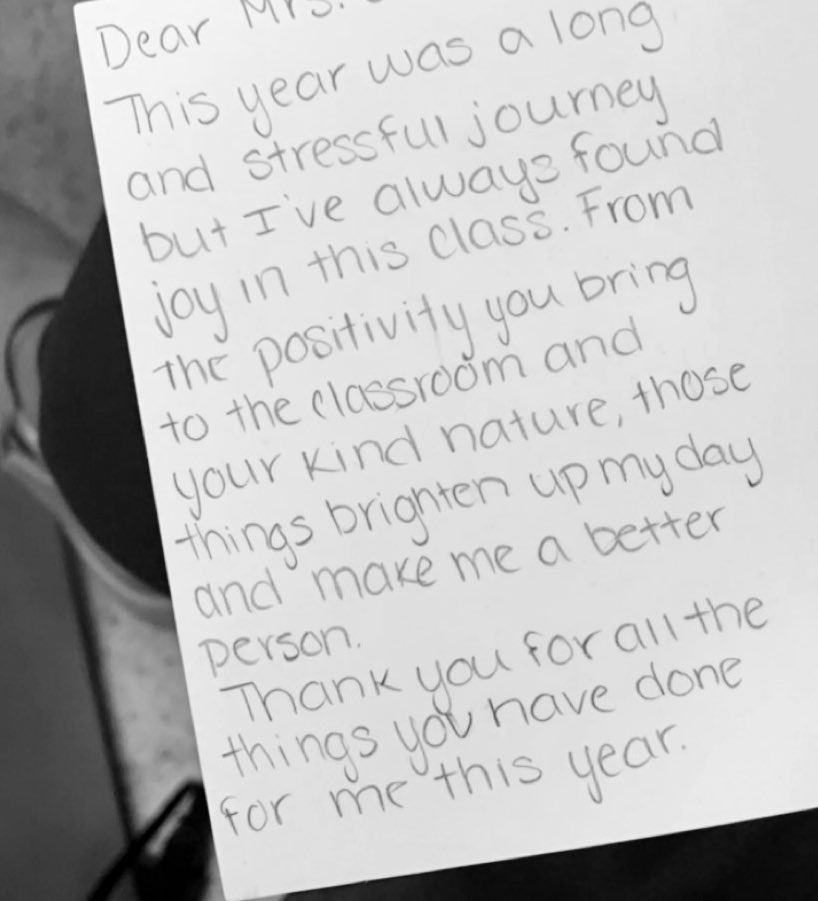 Dear Mrs.
This year was a long
and stressful journey
but I've always found
joy in this class. From
the positivity you bring
to the classroom and
your kind nature, those
things brighten up my day
and make me a better
person.
Thank you for all the
things you have done
for me this year.